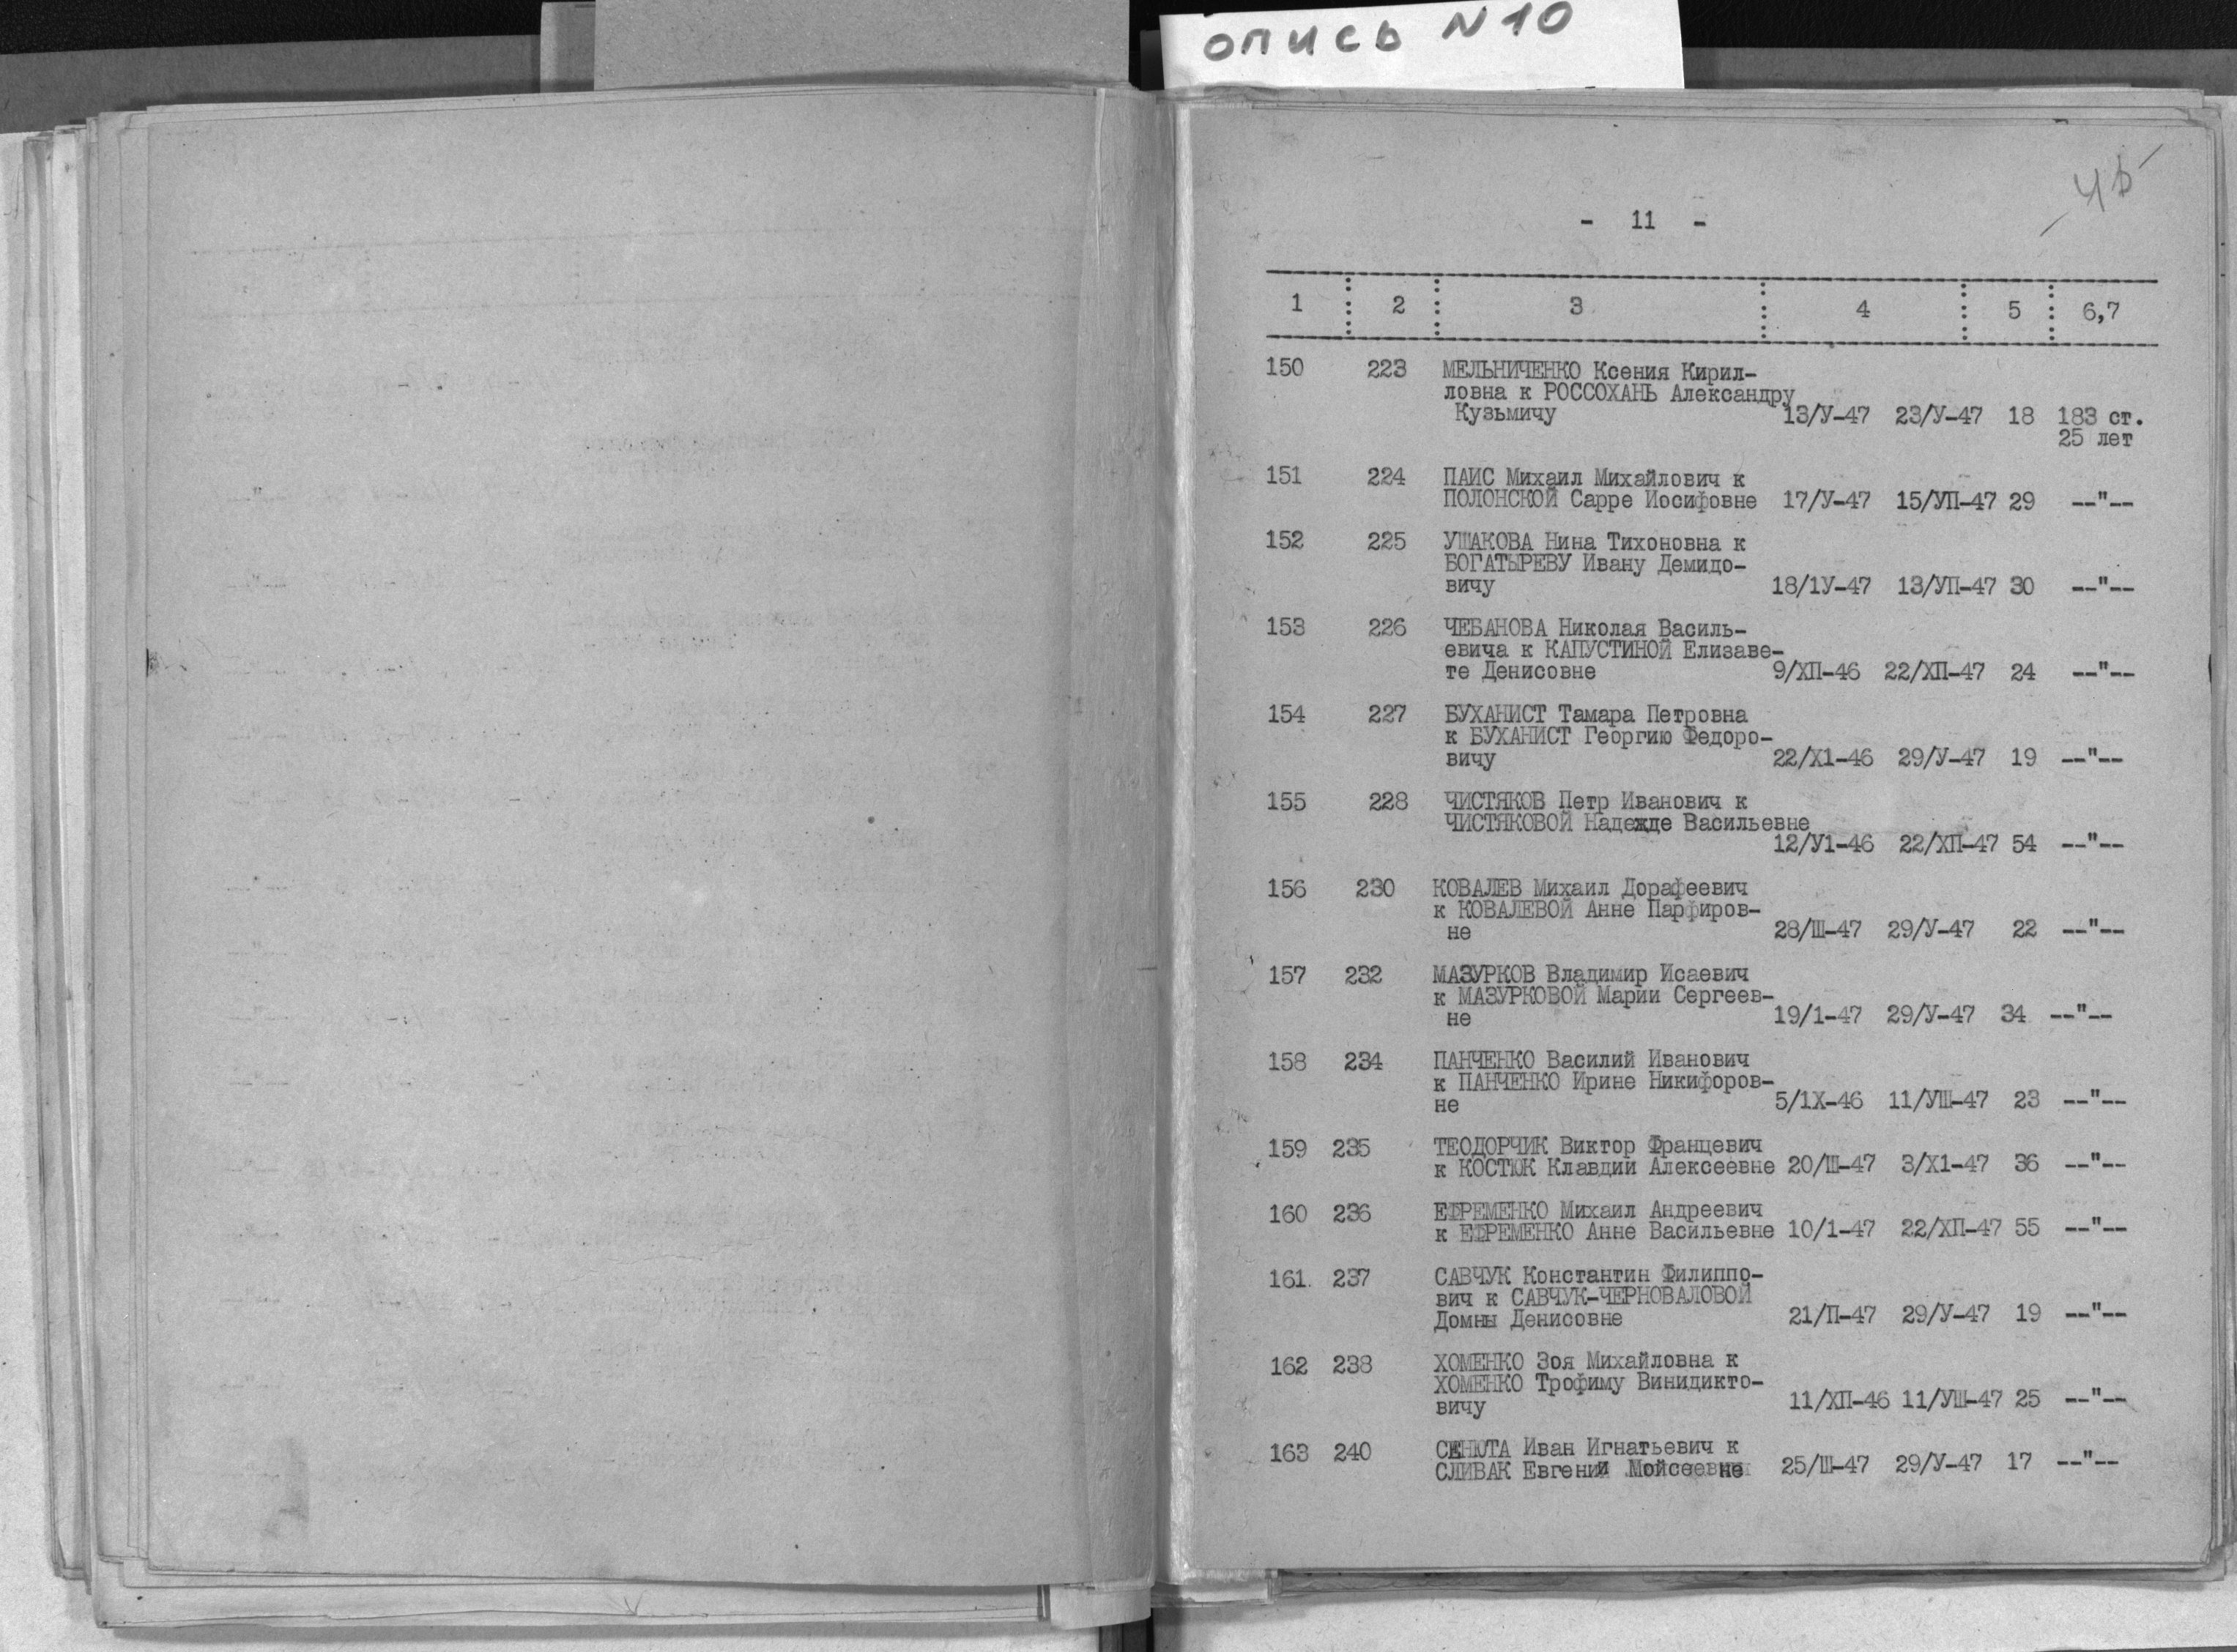 опись N10
45
- 11 -
1 2 3 4 5 6,7
150 223 МЕЛЬНИЧЕНКО Ксения Кирил-
ловна к РОССОХАНЬ Александру
Кузьмичу 13/У-47 23/У-47 18 183 ст.
25 лет
151 224 ПАИС Михаил Михайлович к
ПОЛОНСКОЙ Сарре Иосифовне 17/У-47 15/УП-47 29 --"--
152 225 УШАКОВА Нина Тихоновна к
БОГАТЫРЕВУ Ивану Демидо-
вичу 18/1У-47 13/УП-47 30 --"--
153 226 ЧЕБАНОВА Николая Василь-
евича к КАПУСТИНОЙ Елизаве-
те Денисовне 9/ХП-46 22/ХП-47 24 --"--
154 227 БУХАНИСТ Тамара Петровна
к БУХАНИСТ Георгию Федоро-
вичу 22/Х1-46 29/У-47 19 --"--
155 228 ЧИСТЯКОВ Петр Иванович к
ЧИСТЯКОВОЙ Надежде Васильевне
12/У1-46 22/ХП-47 54 --"--
156 230 КОВАЛЕВ Михаил Дорафеевич
к КОВАЛЕВОЙ Анне Парфиров-
не 28/Ш-47 29/У-47 22 --"--
157 232 МАЗУРКОВ Владимир Исаевич
к МАЗУРКОВОЙ Марии Сергеев-
не 19/1-47 29/У-47 34 --"--
158 234 ПАНЧЕНКО Василий Иванович
к ПАНЧЕНКО Ирине Никифоров-
не 5/1Х-46 11/УШ-47 23 --"--
159 235 ТЕОДОРЧИК Виктор Францевич
к КОСТЮК Клавдии Алексеевне 20/Ш-47 3/Х1-47 36 --"--
160 236 ЕФРЕМЕНКО Михаил Андреевич
к ЕФРЕМЕНКО Анне Васильевне 10/1-47 22/ХП-47 55 --"--
161. 237 САВЧУК Константин Филиппо-
вич к САВЧУК-ЧЕРНОВАЛОВОЙ
Домны Денисовне 21/П-47 29/У-47 19 --"--
162 238 ХОМЕНКО Зоя Михайловна к
ХОМЕНКО Трофиму Винидикто-
вичу 11/ХП-46 11/УШ-47 25 --"--
163 240 СЕНЮТА Иван Игнатьевич к
СЛИВАК Евгении Мойсеевне 25/Ш-47 29/У-47 17 --"--